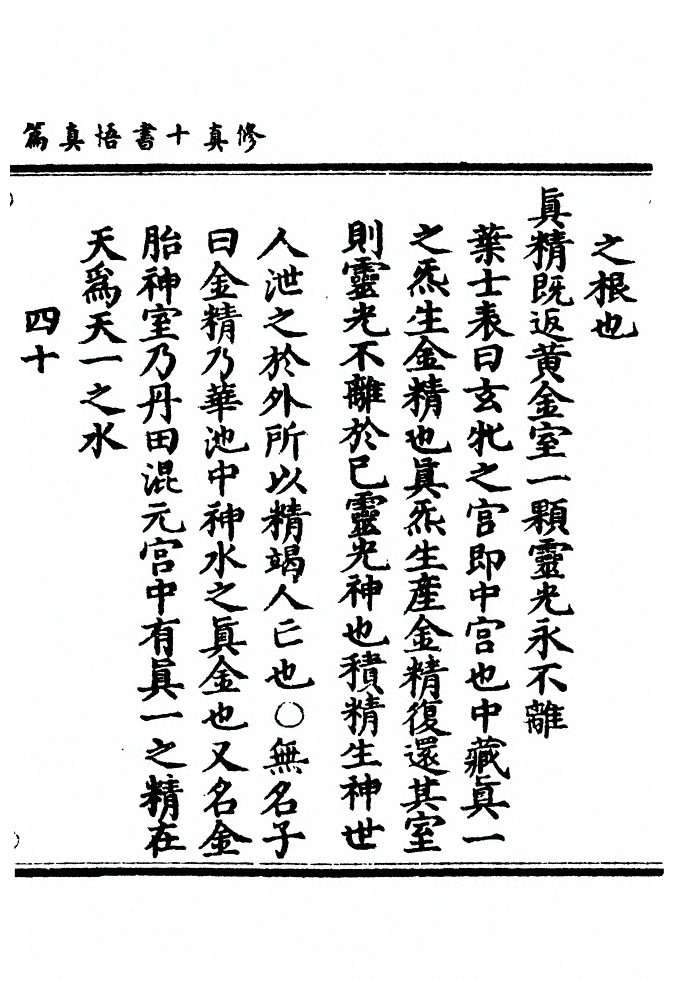 修真十書悟真篇
之根也
眞精既返黄金室一顆靈光永不離
葉士表曰玄牝之宫即中宫也中藏眞一
之炁生金精也眞炁生産金精復還其室
則靈光不離於巳靈光神也積精生神世
人泄之於外所以精竭人亡也○無名子
曰金精乃華池中神水之眞金也又名金
胎神室乃丹田混元宫中有眞一之精在
天爲天一之水
四十